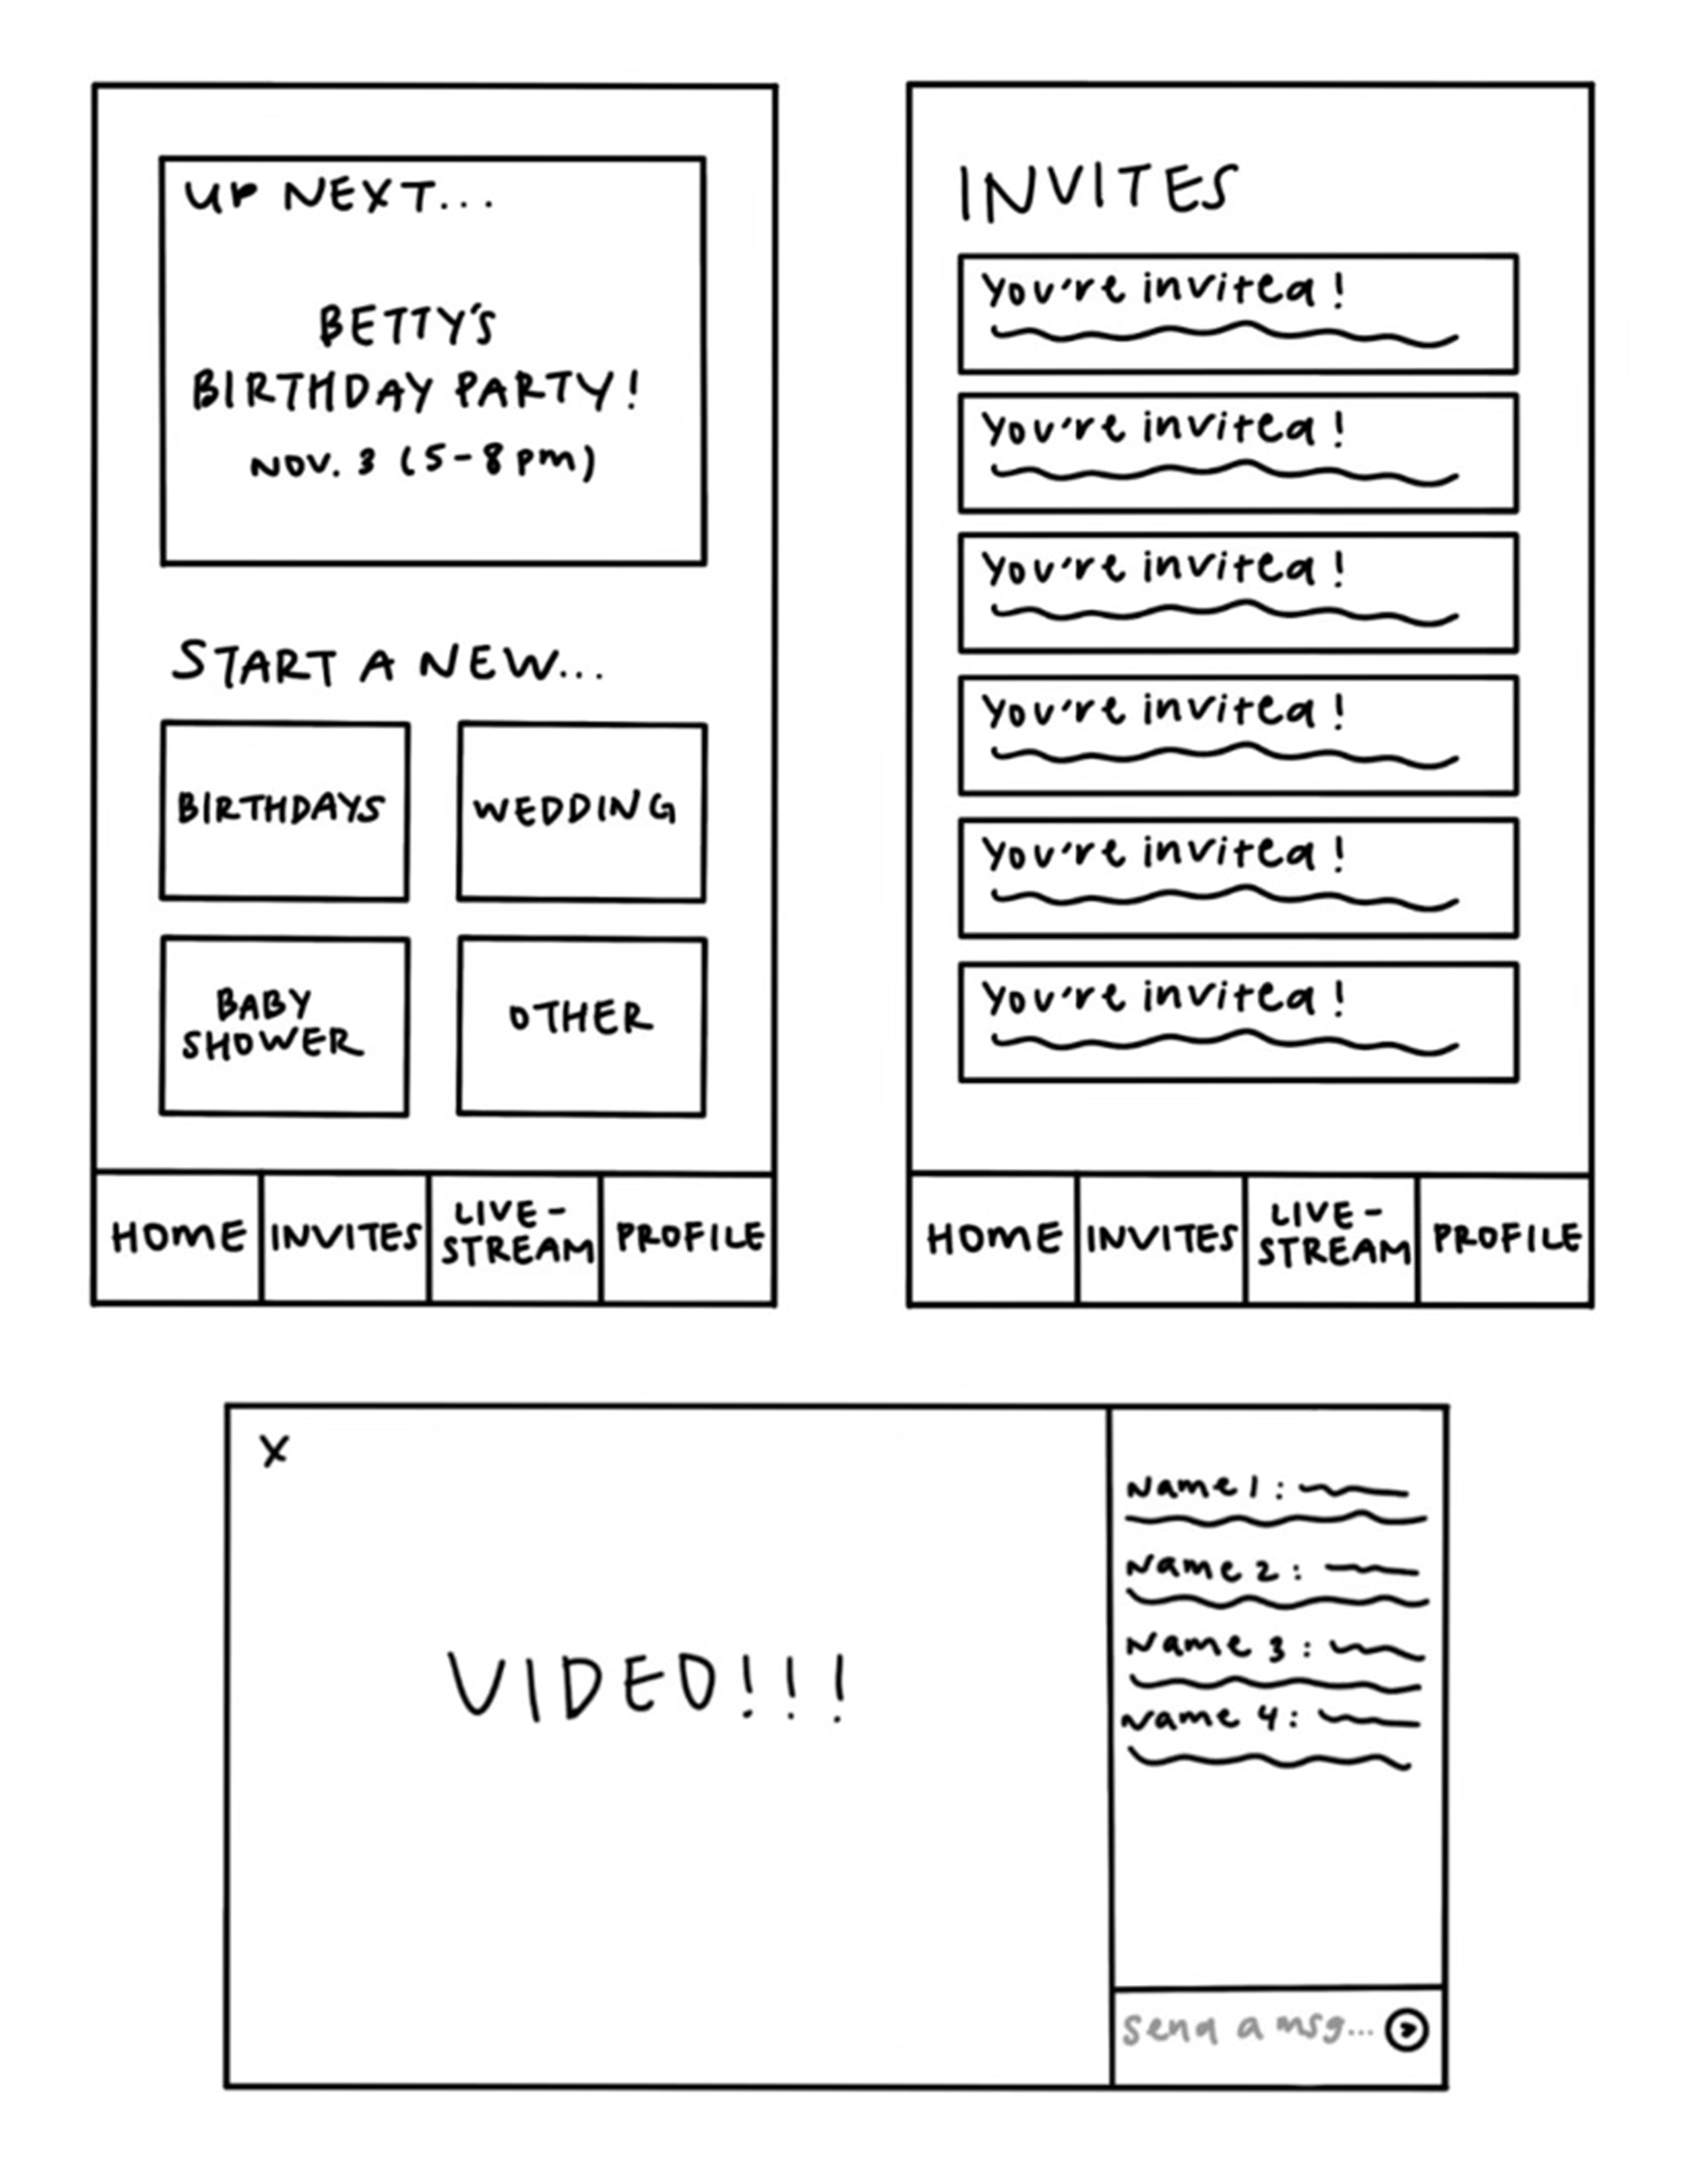 UP NEXT...
BETTY'S
BIRTHDAY PARTY!
NOV. 3 (5-8 pm)
START A NEW...
BIRTHDAYS
WEDDING
BABY
SHOWER
OTHER
HOME
INVITES
LIVE-
STREAM
PROFILE
INVITES
You're invited!
You're invited!
You're invited!
You're invited!
You're invited!
You're invited!
HOME
INVITES
LIVE-
STREAM
PROFILE
X
VIDEO!!!
Name 1:
Name 2:
Name 3:
Name 4:
send a msg...